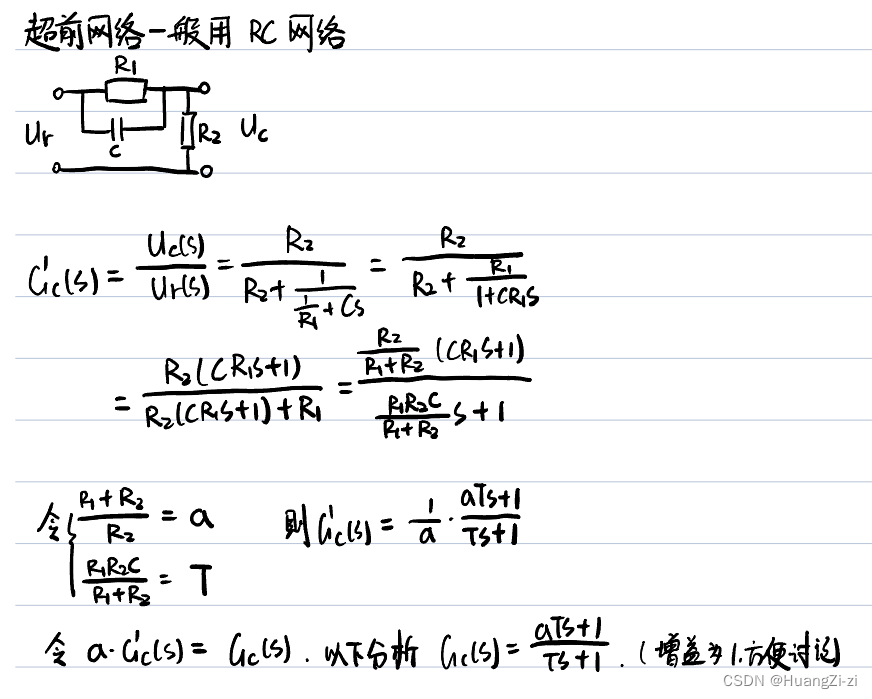 超前网络一般用 RC 网络
R1
Ur C R2 Uc
G'c(s) = Uc(s)/Ur(s) = R2/(R2 + 1/(1/R1 + Cs)) = R2/(R2 + R1/(1+CR1s))
= R2(CR1s+1)/(R2(CR1s+1)+R1) = (R2/(R1+R2) (CR1s+1))/(R1R2C/(R1+R2) s+1)
令{ (R1+R2)/R2 = a 则 G'c(s) = 1/a · (aTs+1)/(Ts+1)
R1R2C/(R1+R2) = T
令 a·G'c(s) = Gc(s). 以下分析 Gc(s) = (aTs+1)/(Ts+1). (增益为1.方便讨论)
CSDN @HuangZi-zi